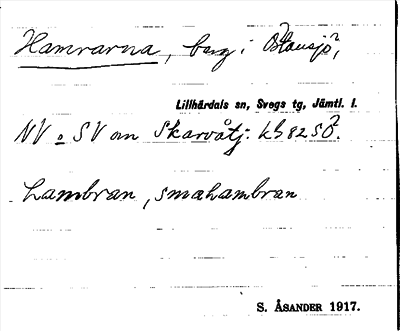 Hamrarna, berg i Östansjö,
Lillhärdals sn, Svegs tg, Jämtl. l.
NV o SV om Skarvåtj: kb 82 SÖ.
hambran, småhambran
S. ÅSANDER 1917.